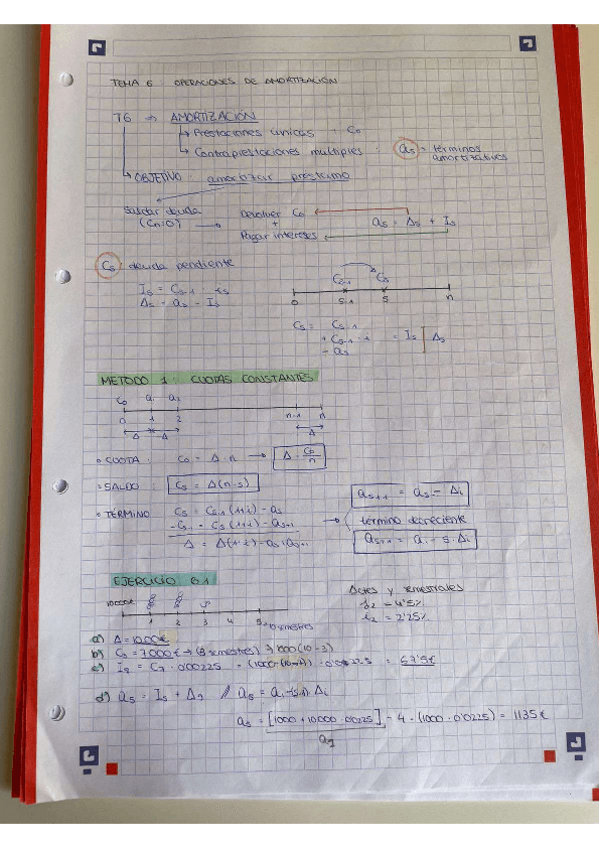 TEMA 6 : OPERACIONES DE AMORTIZACIÓN
T6 → AMORTIZACIÓN
↳ Prestaciones únicas : C0
↳ Contraprestaciones múltiples : as = términos amortizativos
↳ OBJETIVO amortizar préstamo
Saldar deuda (Cn=0) → Devolver C0 + Pagar intereses
as = Δs + Is
Cs deuda pendiente
Is = Cs-1 · is
Δs = as - Is
Cs-1 Cs
0 s-1 s n
Cs = Cs-1
+ Cs-1 · i = Is | Δs
- as
METODO 1 : CUOTAS CONSTANTES
C0 a1 a2
0 1 2 n-1 n
Δ Δ Δ
CUOTA : C0 = Δ · n → Δ = C0/n
SALDO : Cs = Δ(n-s)
TÉRMINO Cs = Cs-1(1+i) - as
-Cs+1 = Cs(1+i) - as+1
Δ = Δ(1+i) - as+as+1
→ as+1 = as - Δi
término decreciente
as+1 = a1 - s·Δi
EJERCICIO 6.1
10000€
1 2 3 4 5
semestres
Δctes y semestrales
j2 = 4'5%
i2 = 2'25%
a) Δ = 1000€
b) C3 = 7000€ → (3 semestres) → 1000(10-3)
d) as = Is + Δs // as = a1-(s-1) Δi
a5 = [1000 + 10000 · 0'0225] - 4 · (1000 · 0'0225) = 1135€
a1